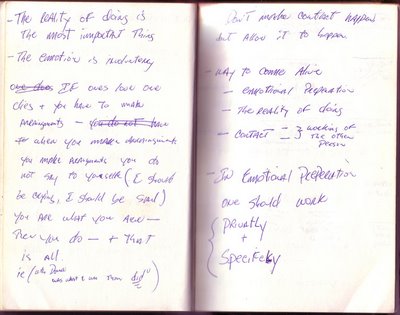 - The REALITY of doing is
the most important Thing
- The emotion is involuntary
IF ones love one
dies + you have to make
arrangments -
when you make
you make arrangments you do
not say to yourself (I should
be crying, I should be sad)
you are what you are -
Then you do - + That
is all.
ie (
was what I was then did")
Don't make contact happen
but allow it to happen
- Way to come Alive
- emotional preparation
- The reality of doing
- contact - } working of
the other
person
- In Emotional Preparation
one should work
{ Privatly
+
Specificly